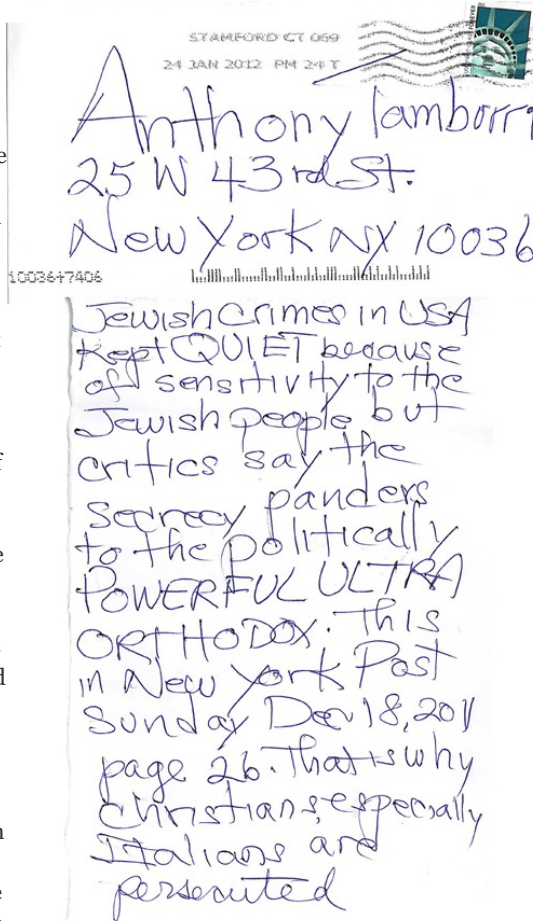 STAMFORD CT 069
24 JAN 2012 PM 24 T
FOREVER
Anthony Tamburri
25 W 43rd St.
New York NY 10036
10036+7406
Jewish Crimes in USA
Kept QUIET because
of sensitivity to the
Jewish people but
critics say the
secrecy panders
to the politically
POWERFUL ULTRA
ORTHODOX. This
in New York Post
Sunday Dec 18, 2011
page 26. That is why
Christians, especially
Italians are
persecuted